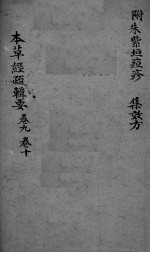 附朱紫垣痘疹　集驗方
本草經疏輯要 卷九 卷十